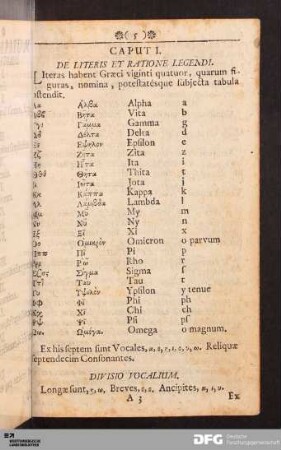 ( 5 )
CAPUT I.
DE LITERIS ET RATIONE LEGENDI.
Literas habent Græci viginti quatuor, quarum fi-
guras, nomina, potestatésque subjecta tabula
ostendit.
Αα Άλφα Alpha a
Βῆτα Vita b
Γάμμα Gamma g
Δέλτα Delta d
Εε Ἐψιλον Epsilon e
Ζῆτα Zita z
Ἦτα Ita i
Θῆτα Thita t
Ἰῶτα Jota j
Κάππα Kappa k
Λάμβδα Lambda l
Μμ Μῦ My m
Νν Νῦ Ny n
Ξξ Ξῖ Xi x
Οο Ὀμικρόν Omicron o parvum
Πῖ Pi p
Ῥῶ Rho r
Σίγμα Sigma ſ
Ταῦ Tau t
Υυ Ὑψιλόν Ypsilon y tenue
Φῖ Phi ph
Χῖ Chi ch
Ψψ Ψῖ Psi pſ
Ωω Ὠμέγα Omega o magnum.
Ex his septem sunt Vocales, α, ε, η, ι, ο, υ, ω. Reliquæ
septendecim Consonantes.
DIVISIO VOCALIUM.
Longæ sunt, η, ω. Breves, ε, ο. Ancipites, α, ι, υ.
A 3 Ex
DFG Deutsche
Forschungsgemeinschaft